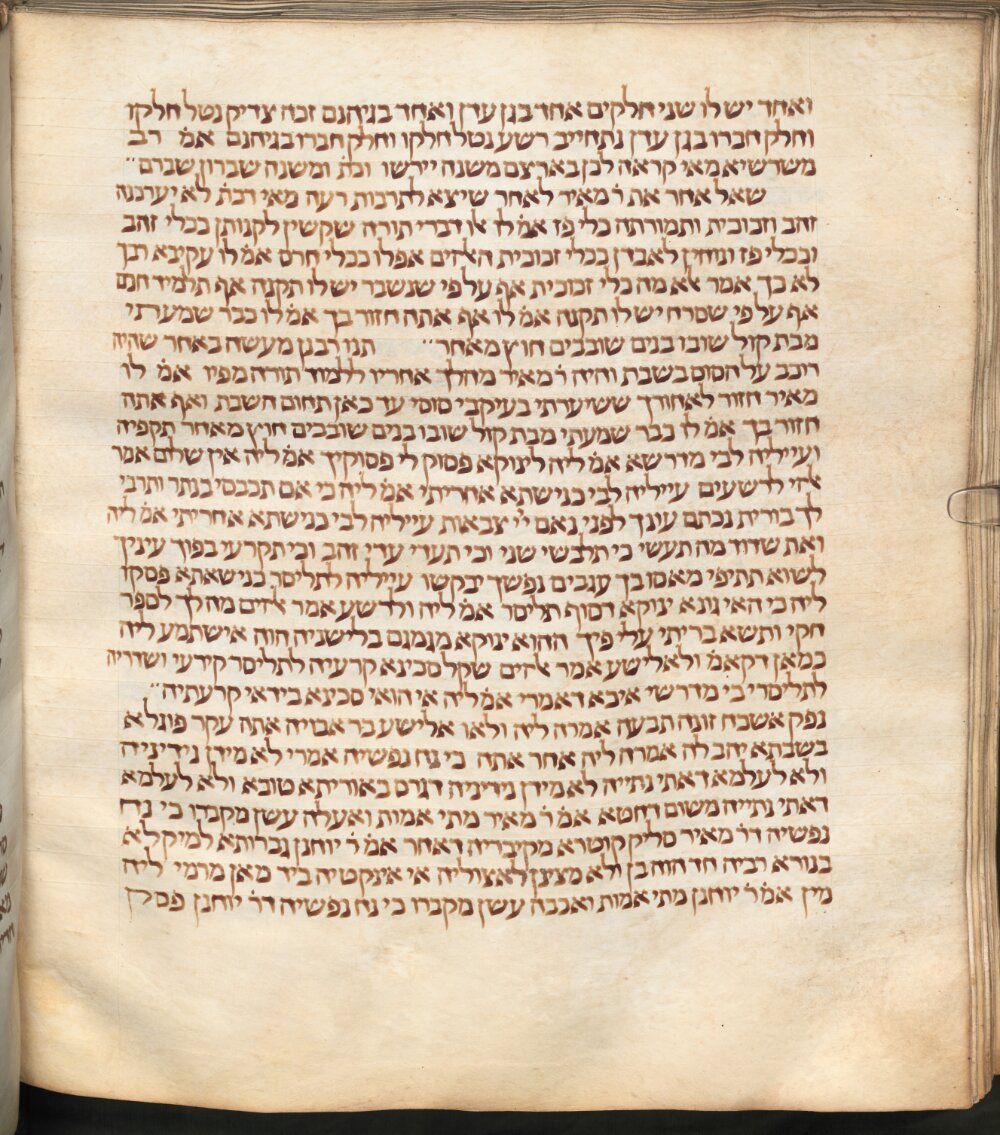 ואחד יש לו שני חלקים אחד בגן עדן ואחד בגיהנם זכה צדיק נטל חלקו
וחלק חברו בגן עדן נתחייב רשע נטל חלקו וחלק חברו בגיהנם אמ׳ רב
משרשיא מאי קראה לכן בארצם משנה יירשו וכת׳ ומשנה שברון שברם״
שאל אחר את ר׳ מאיר לאחר שיצא לתרבות רעה מאי דכת׳ לא יערכנה
זהב וזכוכית ותמורתה כלי פז אמ׳ לו אלו דברי תורה שקשין לקנותן ככלי זהב
וככלי פז ונוחין לאבדן ככלי זכוכית האלהים אפלו ככלי חרס אמ׳ לו עקיבא רבך
לא כך אמר אלא מה כלי זכוכית אף על פי שנשבר יש לו תקנה אף תלמיד חכם
אף על פי שסרח יש לו תקנה אמ׳ לו אף אתה חזור בך אמ׳ לו כבר שמעתי
מבת קול שובו בנים שובבים חוץ מאחר״ תנו רבנן מעשה באחר שהיה
רוכב על הסוס בשבת והיה ר׳ מאיר מהלך אחריו ללמוד תורה מפיו אמ׳ לו
מאיר חזור לאחורך ששיערתי בעיקבי סוסי עד כאן תחום השבת ואף אתה
חזור בך אמ׳ לו כבר שמעתי מבת קול שובו בנים שובבים חוץ מאחר תקפיה
ועייליה לבי מדרשא אמ׳ ליה לינוקא פסוק לי פסוקיך אמ׳ ליה אין שלום אמר
אלהי לרשעים עייליה לבי כנישתא אחריתי אמ׳ ליה כי אם תכבסי בנתר ותרבי
לך בורית נכתם עונך לפני נאם י׳י צבאות עייליה לבי כנישתא אחריתי אמ׳ ליה
ואת שדוד מה תעשי כי תלבשי שני וכי תעדי עדי זהב וכי תקרעי בפוך עיניך
לשוא תתיפי מאסו בך ענבים נפשך יבקשו עייליה לתליסר כנישאתא פסקו
ליה כי האי גונא ינוקא דסוף תליסר אמ׳ ליה ולרשע אמר אלהים מה לך לספר
חקי ותשא בריתי עלי פיך ההוא ינוקא מגמגם בלישניה הוה אישתמע ליה
כמאן דקאמ׳ ולאלישע אמר אלהים שקל סכינא קרעיה לתליסר קידעי ושדריה
לתליסרי בי מדרשי איכא דאמרי אמ׳ ליה אי הואי סכינא בידאי קרעתיה״
נפק אשכח זונה תבעה אמרה ליה ולאו אלישע בר אבויה אתה עקר פוגלא
בשבתא יהב לה אמרה ליה אחר אתה כי נח נפשיה אמרי לא מידן נידיניה
ולא לעלמא דאתי נתייה לא מידן נידיניה דגרס באוריתא טובא ולא לעלמא
דאתי נתייה משום דחטא אמ׳ ר׳ מאיר מתי אמות ואעלה עשן מקברו כי נח
נפשיה דר׳ מאיר סליק קוטרא מקיבריה דאחר אמ׳ ר׳ יוחנן גברותא למיקלא
בנורא רביה חד הוה בן ולא מצינן לאצוליה אי אינקטיה ביד מאן מרמי ליה
מין אמ׳ ר׳ יוחנן מתי אמות ואכבה עשן מקברו כי נח נפשיה דר׳ יוחנן פסק